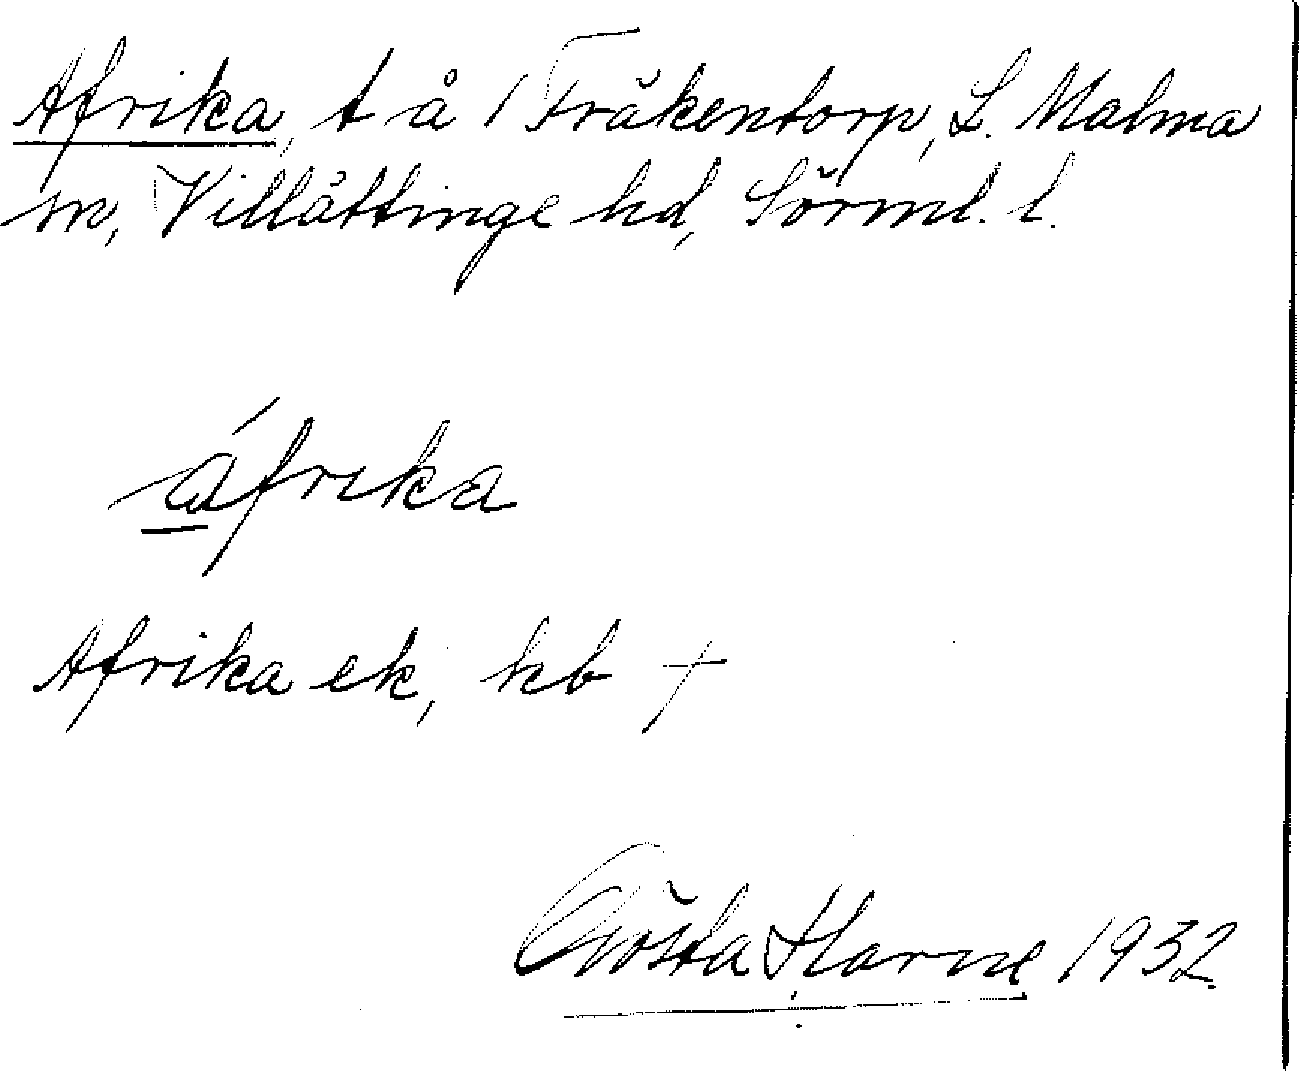 Afrika, t å 1 Fräkentorp, L. Malma
sn, Villåttinge hd, Sörml. l.
áfrika
Afrika ek, kb †
Gösta Harne 1932